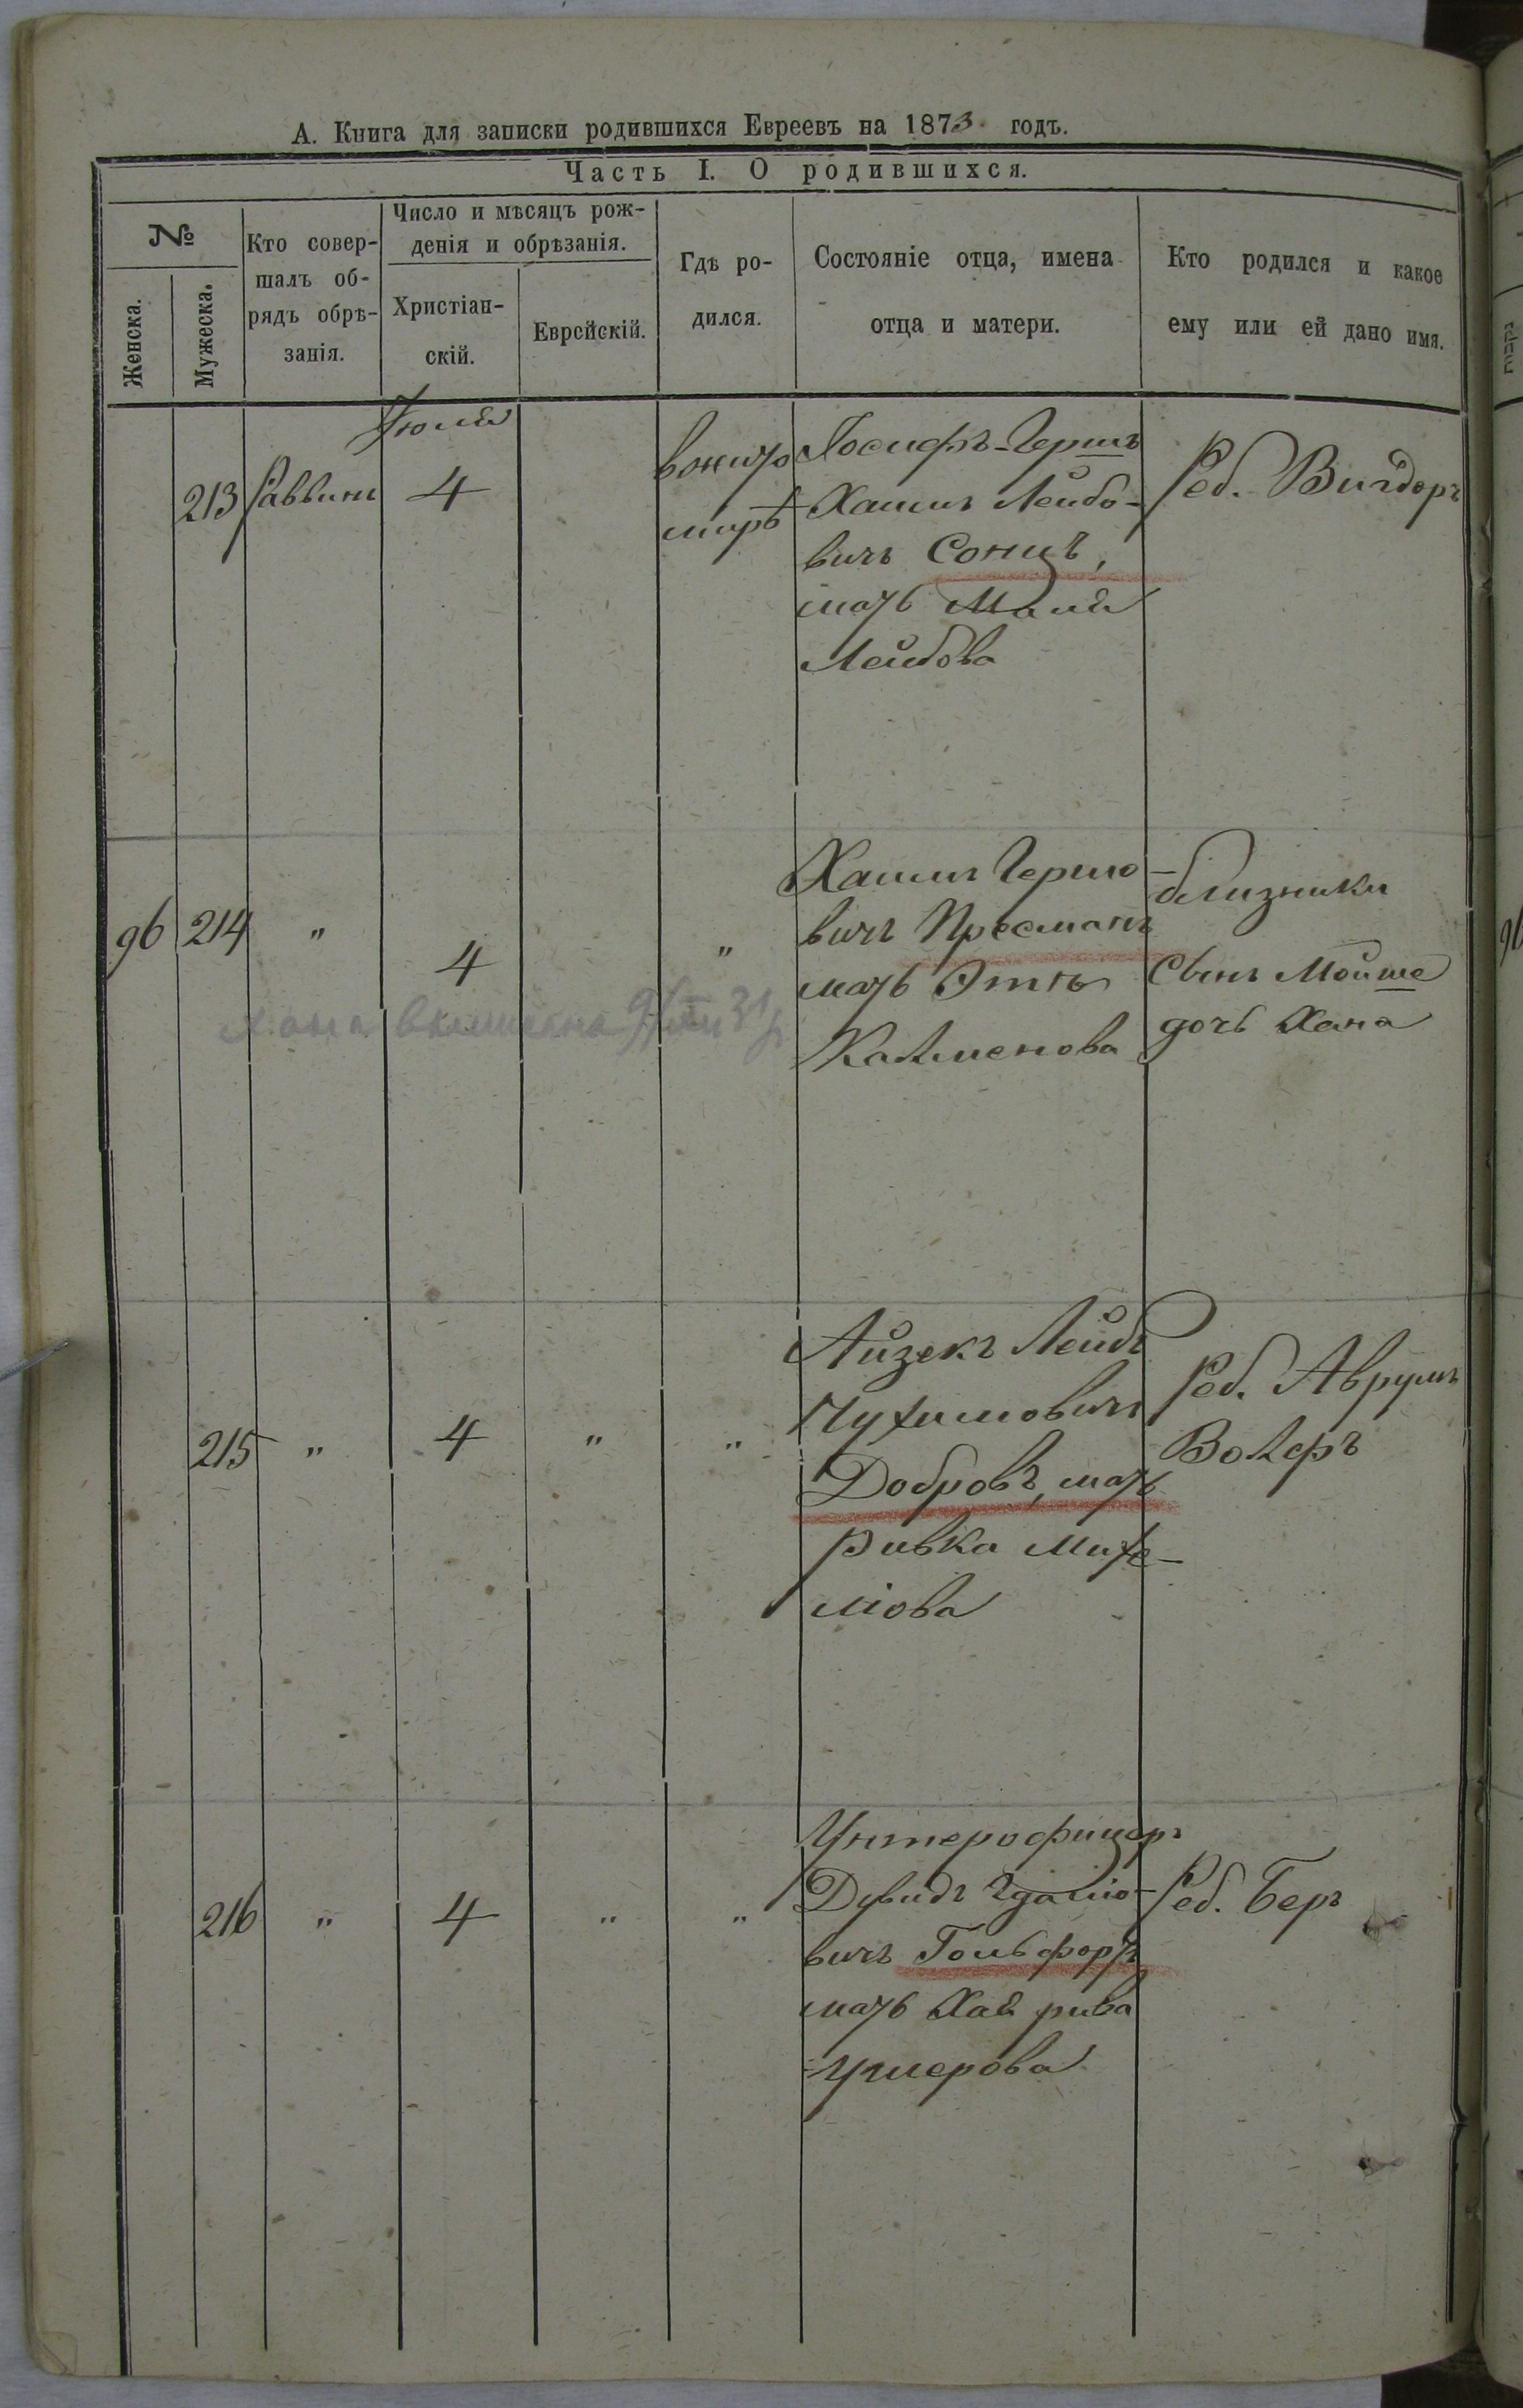 А. Книга для записки родившихся Евреевъ на 1873 годъ.
Часть I. О родившихся.
№
Женска.
Мужеска.
Кто совер-
шалъ об-
рядъ обрѣ-
занія.
Число и мѣсяцъ рож-
денія и обрѣзанія.
Христіан-
скій.
Еврейскій.
Гдѣ ро-
дился.
Состояніе отца, имена
отца и матери.
Кто родился и какое
ему или ей дано имя.
213
Раввинъ
Іюля
4
вжито
мирѣ
Іосифъ-Гершъ
Хаимъ Лейбо-
вичъ Сонцъ,
мать Маля
Лейбова
Реб. Вигдоръ
96
214
"
4
"
Хаимъ Гершо-
вичъ Пресманъ
мать Этль
Калменова
близники
Сынъ Мойше
дочь Хана
Хана
215
"
4
"
"
Айзекъ Лейбъ
Нухимовичъ
Добровъ, мать
Ривка Михе-
лiова
Реб. Аврумъ
Волфъ
216
"
4
"
"
Унтерофицеръ
Дувидъ Гдалiо-
вичъ
мать Хая рива
Ушерова
Реб. Беръ